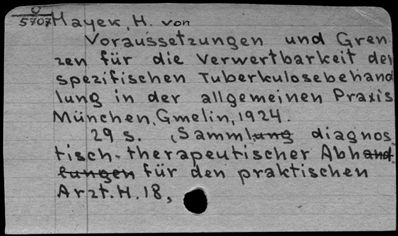 O
5707
Mayer, H. von
Voraussetzungen und Gren
zen für die Verwertbarkeit der
spezifischen Tuberkulosebehand
lung in der allgemeinen Praxis
München, Gmelin, 1924.
29 s. (Samml diagnos
tisch-therapeutischer Abh
für den praktischen
Arzt. H. 18,